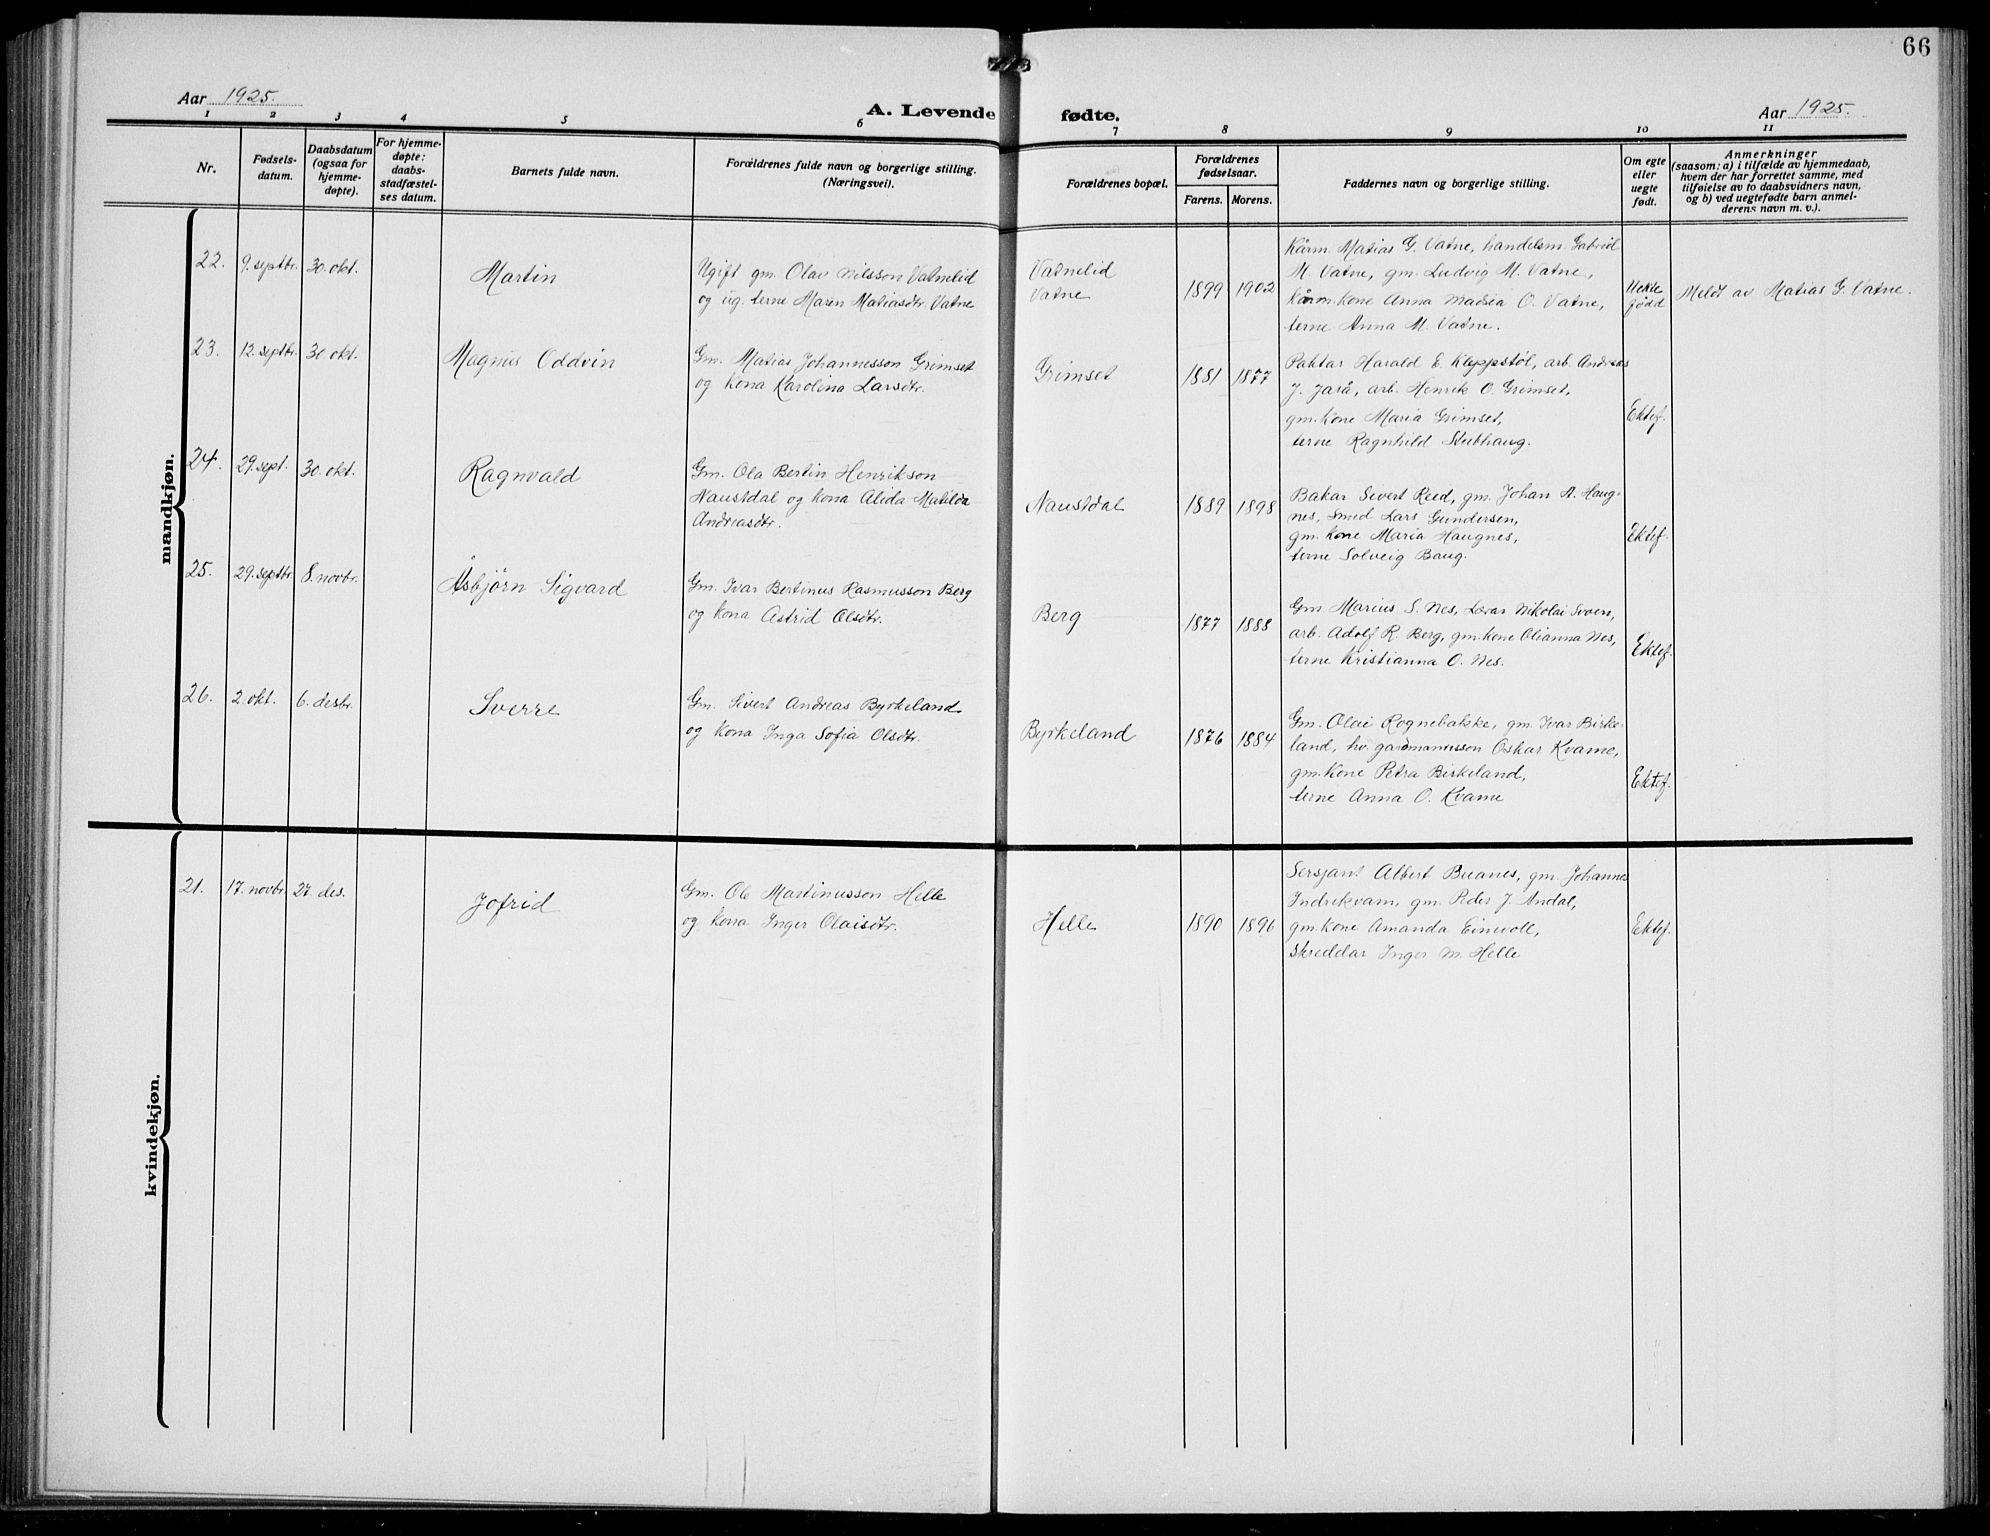 66
Aar 1925.
A. Levende fødte.
Aar 1925.
1 2 3 4 5 6 7 8 9 10 11
Nr.
Fødsels-
datum.
Daabsdatum
(ogsaa for
hjemme-
døpte).
For hjemme-
døpte:
daabs-
stadfæstel-
ses datum.
Barnets fulde navn.
Forældrenes fulde navn og borgerlige stilling.
(Næringsvei).
Forældrenes bopæl.
Forældrenes
fødselsaar.
Farens. Morens.
Faddernes navn og borgerlige stilling.
Om egte
eller
uegte
født.
Anmerkninger
(saasom: a) i tilfælde av hjemmedaab,
hvem der har forrettet samme, med
tilføielse av to daabsvidners navn,
og b) ved uegtefødte barn anmel-
derens navn m. v.).
mandkjøn.
22. 9. septbr. 30. okt.
Martin
Ugift gm. Olav Nilsson Vatnelid
og ug. terne Maren Matiasdtr. Vatne
Vatnelid
Vatne
1899 1902
Kårm. Matias G. Vatne, handelsm. Gabriel
M. Vatne, gm. Ludvig M. Vatne,
kårm. kone Anna Madsia O. Vatne,
terne Anna M. Vatne.
Uekte
fødd
Meldt av Matias G. Vatne.
23. 12. septbr. 30. okt.
Magnus Oddvin
Gm. Matias Johannesson Grimset
og kona Karolina Larsdtr.
Grimset
1881 1877
Paktar Harald E. Kleppstøl, arb. Andreas
J. Jarå, arb. Henrik O. Grimset,
gm. kone Maria Grimset,
terne Ragnhild Stubhaug.
Ektef.
24. 29. sept. 30. okt.
Ragnvald
Gm. Ola Bertin Henrikson
Naustdal og kona Alida Matilda
Andreasdtr.
Naustdal
1889 1898
Bakar Sivert Reed, gm. Johan A. Haug-
nes, Smed Lars Gundersen,
gm. kone Maria Haugnes,
terne Solveig Baug.
Ektef.
25. 29. septbr. 8. novbr.
Åsbjørn Sigvard
Gm. Ivar Bertinus Rasmusson Berg
og kona Astrid Olsdtr.
Berg
1877 1888
Gm. Marius S. Nes, Lærar Nikolai Svoen,
arb. Adolf R. Berg, gm. kone Olianna Nes,
terne Kristianna O. Nes.
Ektef.
26. 2. okt. 6. desbr.
Sverre
Gm. Sivert Andreas Byrkeland
og kona Inga Sofia Olsdtr.
Byrkeland
1876 1884
Gm. Olai Rognebakke, gm. Ivar Birke-
land, hv. gardmannsson Oskar Kvame,
gm. kone Petra Birkeland,
terne Anna O. Kvame
Ektef.
kvindekjøn.
21. 17. novbr. 27. des.
Jofrid
Gm. Ole Martinusson Helle
og kona Inger Olaisdtr.
Helle
1890 1896
Sersjant Albert Buanes, gm. Johannes
Indrekvam, gm. Peder J. Andal,
gm. kone Amanda Einevoll,
skreddar Inger M. Helle
Ektef.